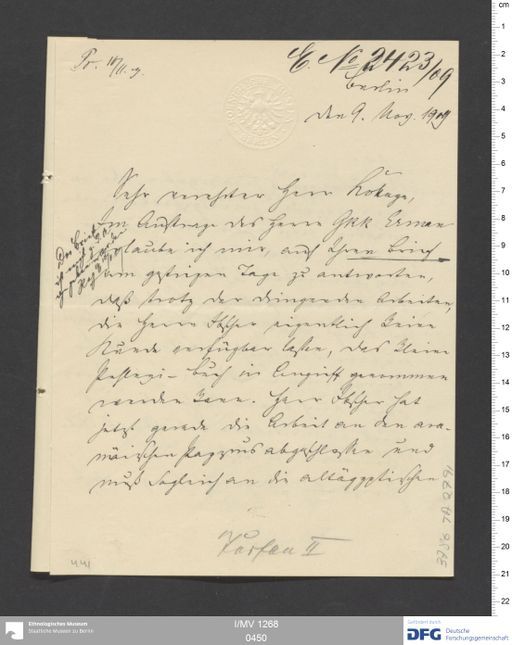 Pr. 10/11. 09.
E. № 2423/09
Berlin
den 9. Nov. 1909
Sehr verehrter Herr
im Auftrage des Herrn GRR Erman
erlaube ich mir, auf Ihren Brief
vom gestrigen Tage zu antworten,
daß trotz der dringenden Arbeiten,
die Herrn Ibscher eigentlich keine
Stunde verfügbar lassen, das kleine
Buch in Angriff genommen
werden kann. Herr Ibscher hat
jetzt gerade die Arbeit an den ara-
mäischen Papyrus abgeschlossen und
muß sogleich an die altägyptischen
Der Brief
441
Ethnologisches Museum
Staatliche Museen zu Berlin
I/MV 1268
0450
Gefördert durch
DFG Deutsche
Forschungsgemeinschaft
cm
1
2
3
4
5
6
7
8
9
10
11
12
13
14
15
16
17
18
19
20
21
22